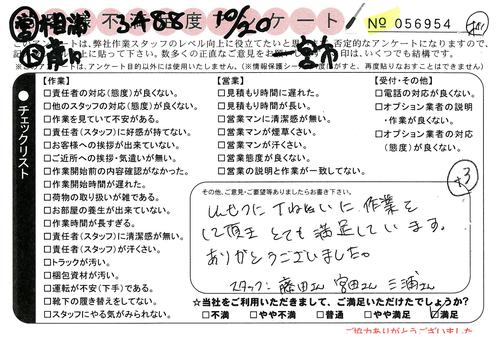 3488 10/20
No 056954
このアンケートは、弊社作業スタッフのレベル向上に役立てたいと
否定的なアンケートになりますので、
【作業】
□責任者の対応(態度)が良くない。
□他のスタッフの対応(態度)が良くない。
□作業を見ていて不安がある。
□責任者(スタッフ)に好感が持てない。
□お客様への挨拶が出来ていない。
□ご近所への挨拶・気遣いが無い。
□作業開始前の内容確認がなかった。
□作業開始時間が遅れた。
□荷物の取り扱いが雑である。
□お部屋の養生が出来ていない。
□作業時間が長すぎる。
□責任者(スタッフ)に清潔感が無い。
□責任者(スタッフ)が汗くさい。
□トラックが汚い。
□梱包資材が汚い。
□運転が不安(下手)である。
□靴下の履き替えをしてない。
□スタッフにやる気がみられない。
チェックリスト
【営業】
□見積もり時間に遅れた。
□見積もり時間が長い。
□営業マンに清潔感が無い。
□営業マンが煙草くさい。
□営業マンが汗くさい。
□営業態度が良くない。
□営業の説明と作業が一致してない。
【受付・その他】
□電話の対応が良くない。
□オプション業者の説明
・作業が良くない。
□オプション業者の対応
(態度)が良くない。
+3
その他、ご意見・ご要望等ありましたらお書き下さい。
しんせつに ていねいに 作業を
して頂き とても 満足しています。
ありがとうございました。
スタッフ: 藤田さん 宮田さん 三浦さん
☆当社をご利用いただきまして、ご満足いただけたでしょうか?
□不満 □やや不満 □普通 □やや満足 □満足
ご協力ありがとうございました